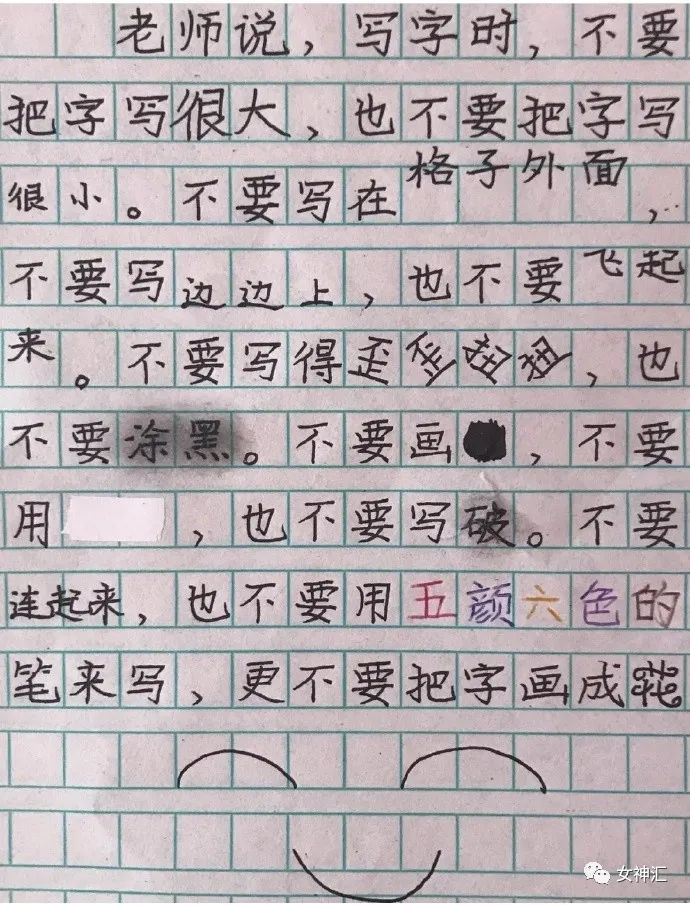 老师说，写字时，不要
把字写很大，也不要把字写
很小。不要写在格子外面，
不要写边边上，也不要飞起
来。不要写得歪歪扭扭，也
不要涂黑。不要画，不要
用，也不要写破。不要
连起来，也不要用五颜六色的
笔来写，更不要把字画成花
女神汇